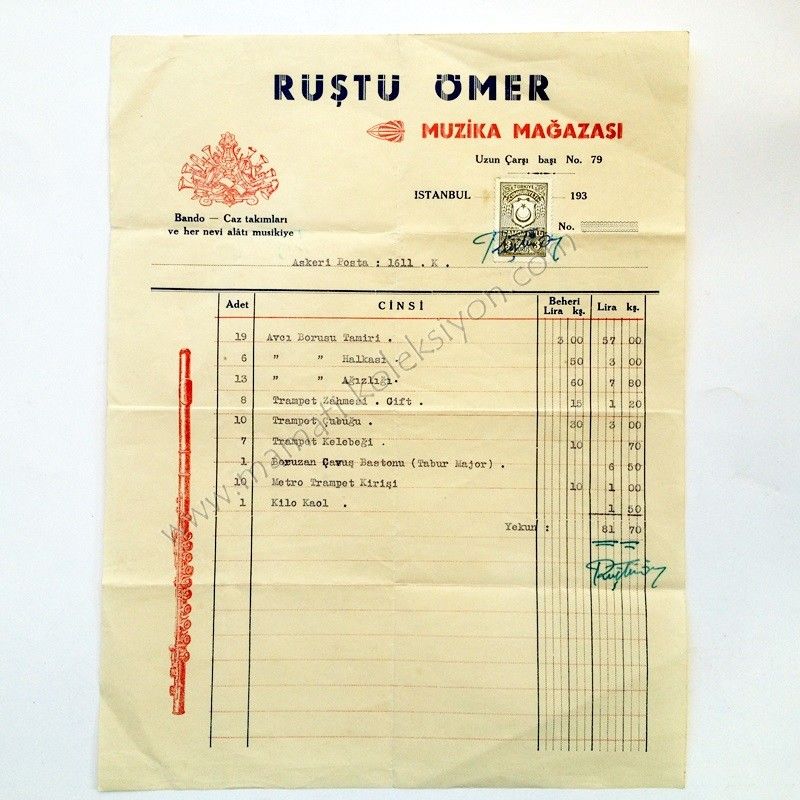 RÜŞTÜ ÖMER
MUZİKA MAĞAZASI
Uzun Çarşı başı No. 79
ISTANBUL 193
No.
Bando — Caz takımları
ve her nevi alâtı musikiye
Askeri Posta : 1611 . K .
Adet CİNSİ Beheri Lira kş. Lira kş.
19 Avcı Borusu Tamiri . 3 00 57 00
6 " " Halkası . 50 3 00
13 " " Ağızlığı . 60 7 80
8 Trampet Zahmesi . Çift . 15 1 20
10 Trampet Çubuğu . 30 3 00
7 Trampet Kelebeği . 10 70
1 Boruzan Çavuş Bastonu (Tabur Major) . 6 50
10 Metro Trampet Kirişi 10 1 00
1 Kilo Kaol . 1 50
Yekun : 81 70
www.mamafihkoleksiyon.com